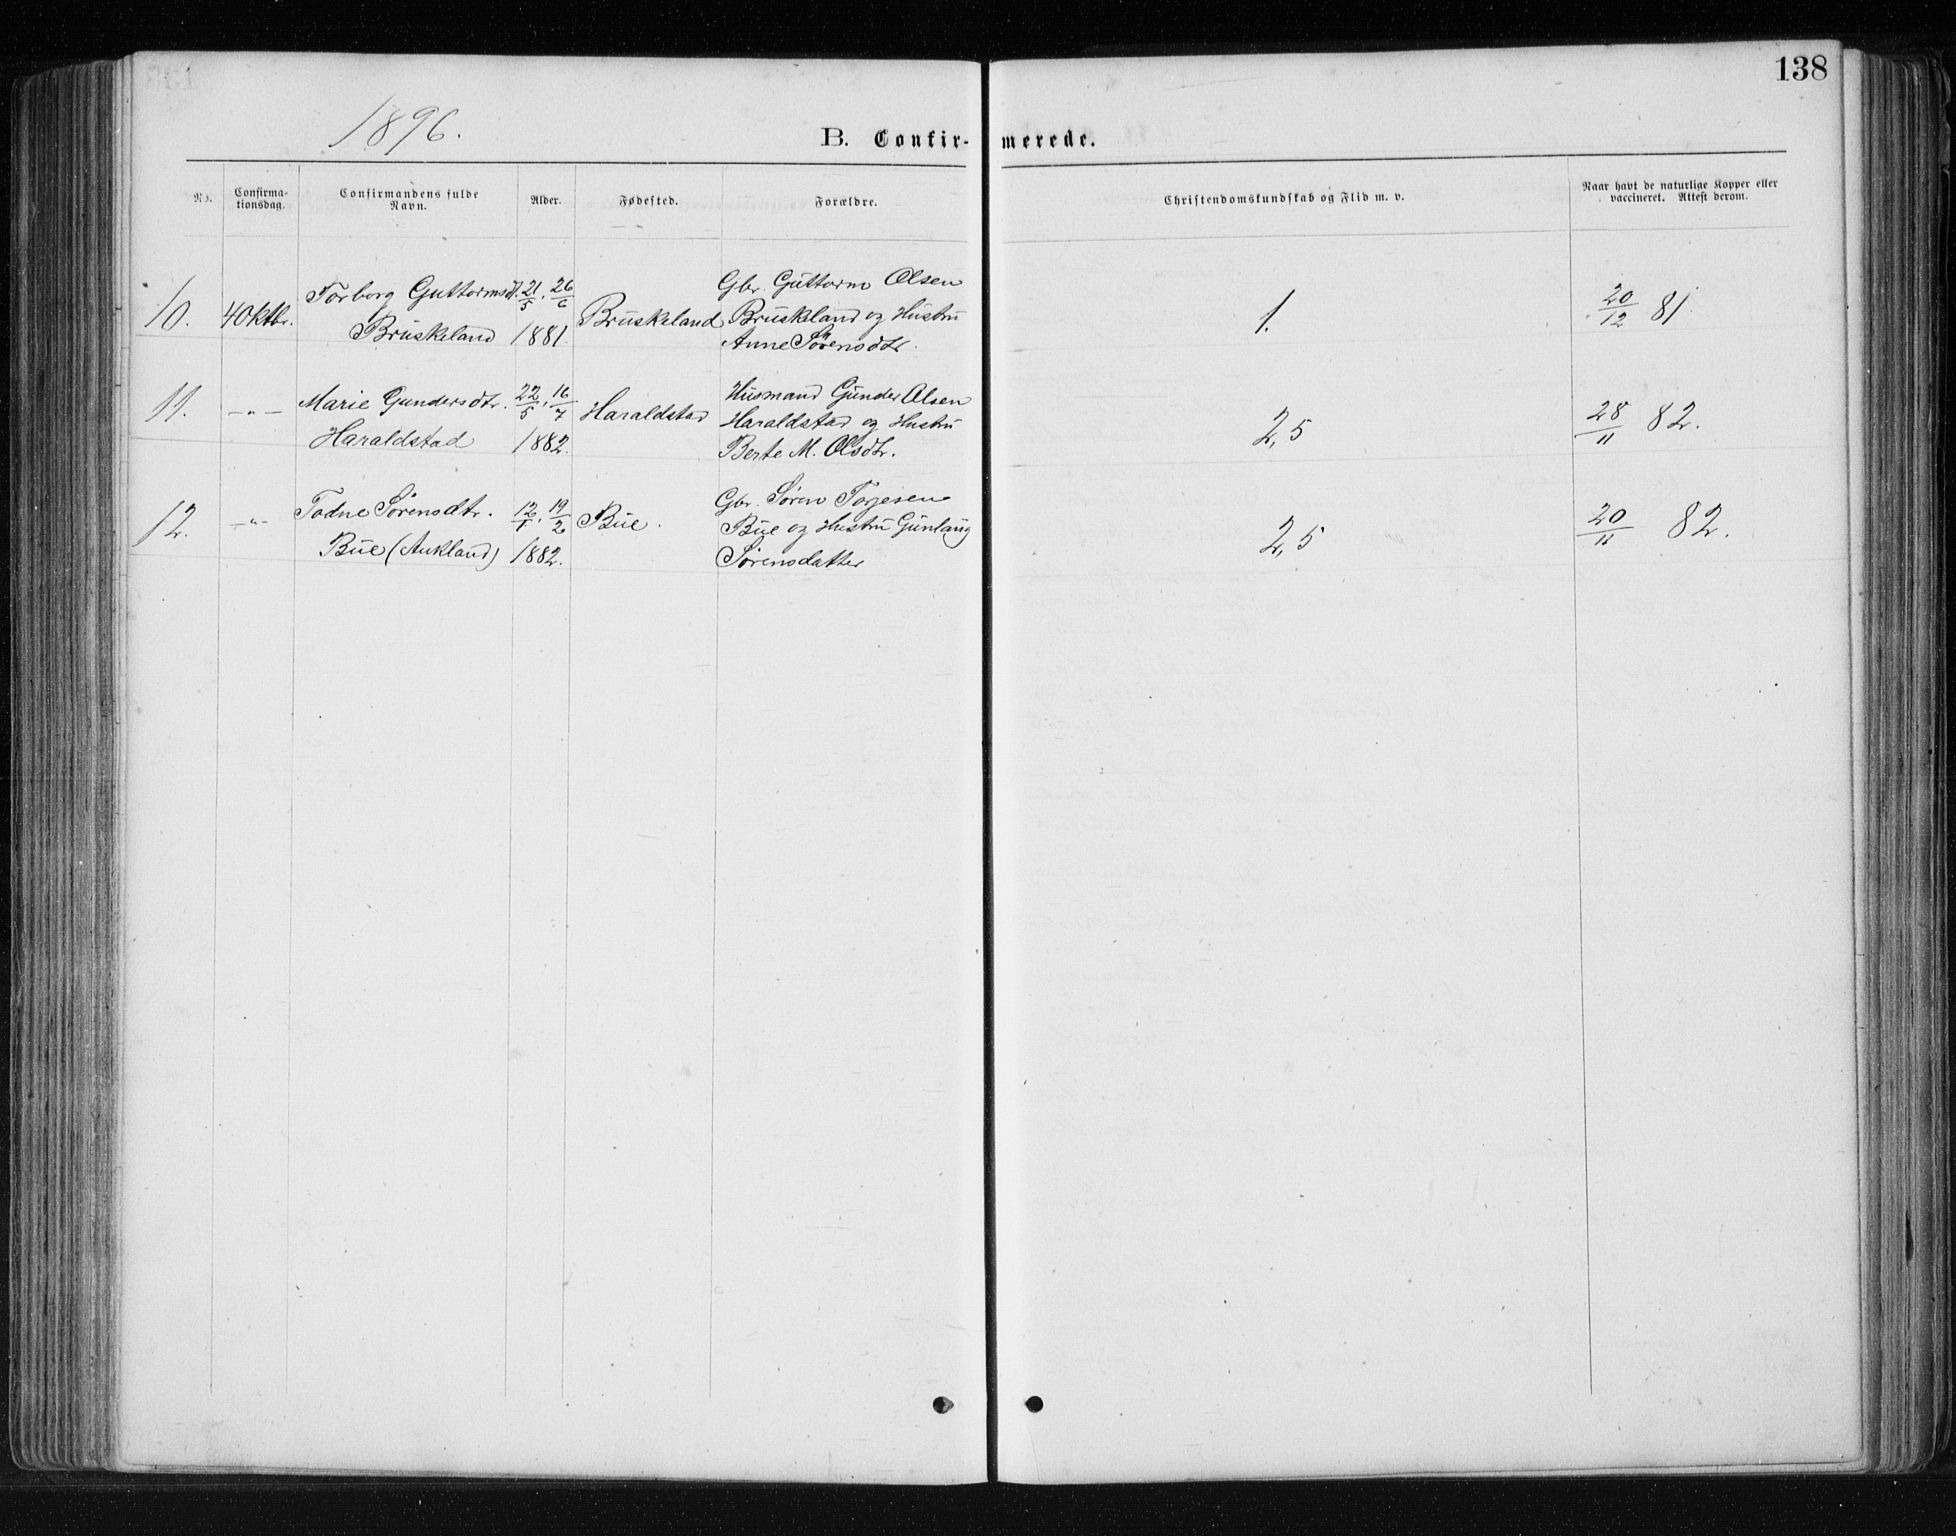 138
1896.
B. Confirmerede.
No. Confirma-tionsdag. Confirmandens fulde Navn. Alder. Fødested. Forældre. Christendomskundskab og Flid m. v. Naar havt de naturlige Kopper eller vaccineret. Attest derom.
10. 4 Oktbr. Torborg Guttormsd. 21/5, 26/6 Bruskeland Gbr. Guttorm Olsen 1. 20/12 81.
Bruskeland 1881. Bruskeland og Hustru
Anne Sørensdtr.
11. -"- Marie Gundersdtr. 22/5, 16/7 Haraldstad Husmand Gunder Olsen 2,5 28/11 82.
Haraldstad 1882. Haraldstad og Hustru
Berte M. Olsdtr.
12. -"- Tadne Sørensdtr. 12/1, 19/2 Bue. Gbr. Søren Torjesen 2,5 20/11 82.
Bue (Aukland) 1882. Bue og Hustru Gunlaug
Sørensdatter